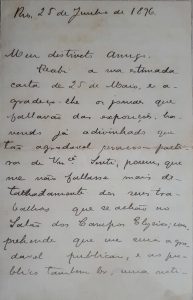 Rio, 25 de Junho de 1896.
Meu distincto Amigo.
Recebi a sua estimada
carta de 25 de Maio, e a-
gradeço-lhe os
fallavão das exposições, ha-
vendo já adivinhado que
tão agradavel
de Vmcê. Sinto, porem, que
me não fallasse mais de-
talhadamente dos seus tra-
balhos que se achão no
Salão dos Campos Elyseos; com-
prehende que me seria agra-
davel publicar, e ao pu-
blico tambem ler, uma